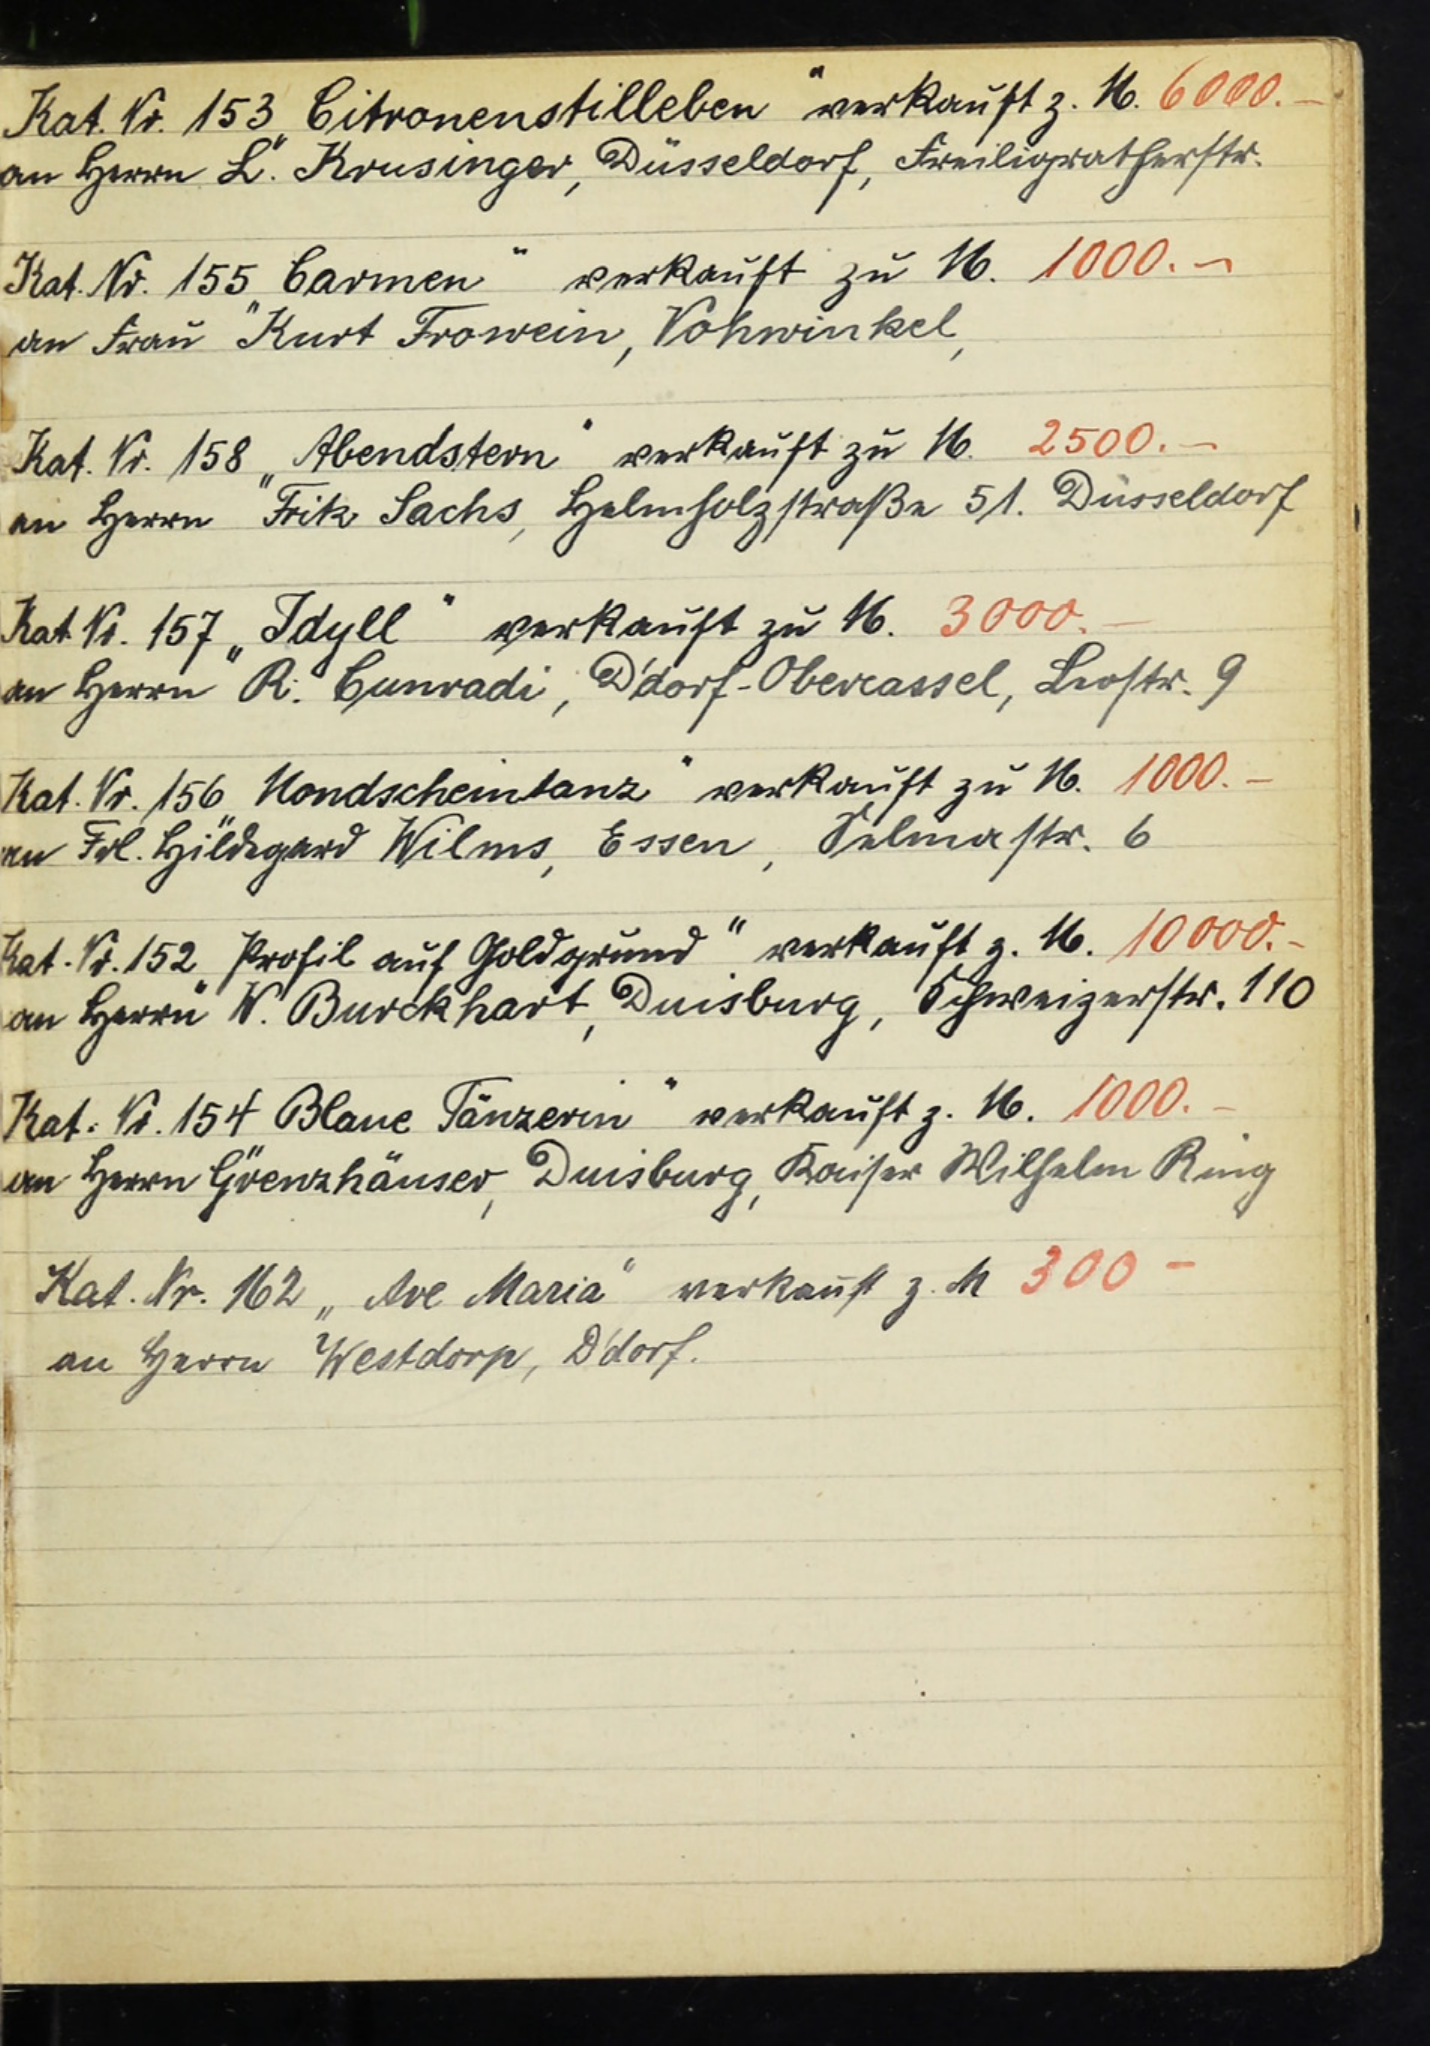 Kat. Nr. 153 „Citronenstilleben“ verkauft z. M. 6000.–
an Herrn L. Krusinger, Düsseldorf, Freiligratherstr.
Kat. Nr. 155 „Carmen“ verkauft zu M. 1000.–
an Frau Kurt Frowein, Vohwinkel,
Kat. Nr. 158 „Abendstern“ verkauft zu M. 2500.–
an Herrn Fritz Sachs, Helmholzstraße 51. Düsseldorf
Kat Nr. 157 „Idyll“ verkauft zu M. 3000.–
an Herrn R. Cunradi, D'dorf-Obercassel, Leostr. 9
Kat. Nr. 156 „Mondscheintanz“ verkauft zu M. 1000.–
an Frl. Hildegard Wilms, Essen, Selmastr. 6
Kat. Nr. 152 „Profil auf Goldgrund“ verkauft z. M. 10000.–
an Herrn W. Burckhart, Duisburg, Schweizerstr. 110
Kat. Nr. 154 „Blaue Tänzerin“ verkauft z. M. 1000.–
an Herrn Grenzhäuser, Duisburg, Kaiser Wilhelm Ring
Kat. Nr. 162 „Ave Maria“ verkauft z. M 300–
an Herrn Westdorp, D'dorf.